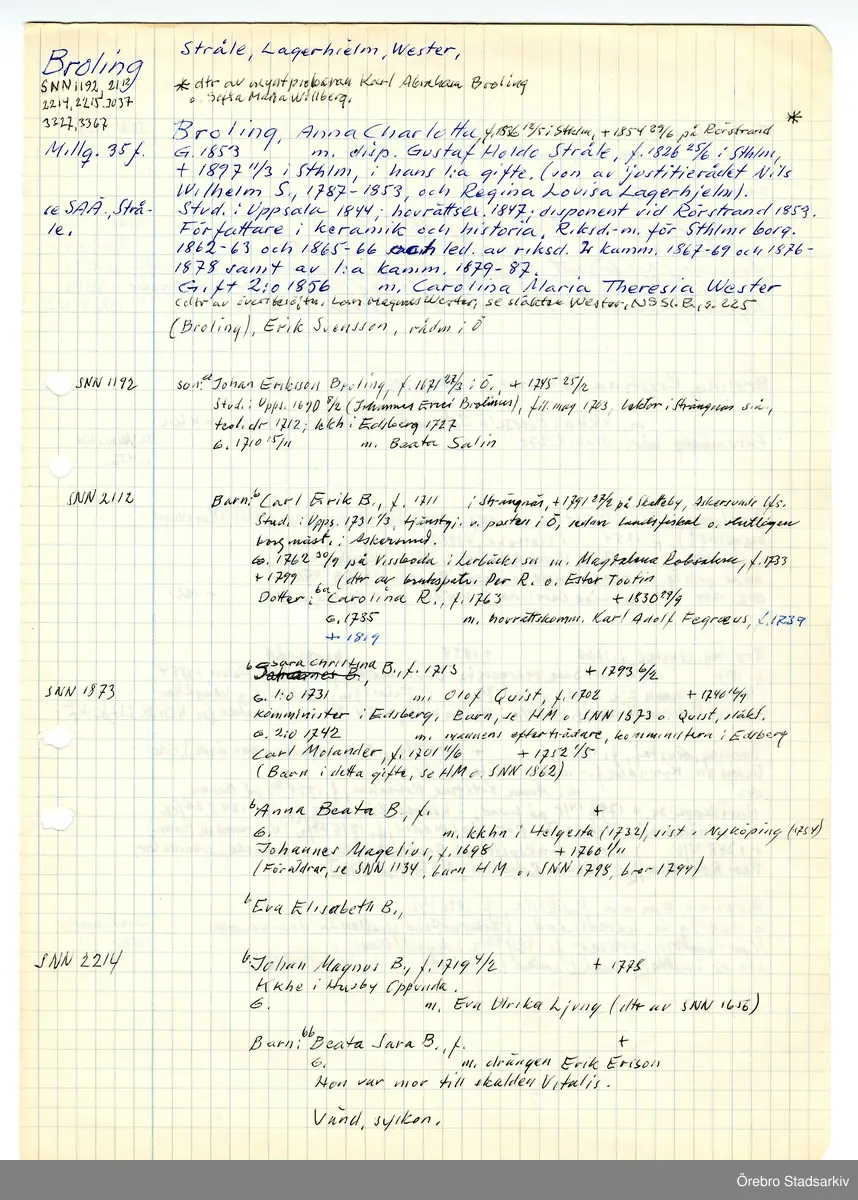 Broling
SNN 1192, 2112
2214, 2215, 3037
3327, 3367
Millq. 35 f.
se SÄÄ, Strå-
le.
Stråle, Lagerhielm, Wester,
* dtr av myntproberaren Karl Abraham Broling
o. Sofia Maria Willberg.
*
Broling, Anna Charlotta, f. 1836 13/5 i Sthlm, + 1854 29/6 på Rörstrand
G. 1853 m. disp. Gustaf Holdo Stråle, f. 1826 25/6 i Sthlm,
+ 1897 11/3 i Sthlm, i hans 1:a gifte, (son av justitierådet Nils
Wilhelm S., 1787-1853, och Regina Lovisa Lagerhjelm).
Stud. i Uppsala 1844; hovrättsex. 1847; disponent vid Rörstrand 1853.
Författare i keramik och historia. Riksd.-m. för Sthlms borg.
1862-63 och 1865-66 och led. av riksd. II kamm. 1867-69 och 1876-
1878 samt av 1:a kamm. 1879-87.
Gift 2:o 1856 m. Carolina Maria Theresia Wester
(dtr av överstelöjtn. Lars Magnus Wester, se släkten Wester, NSSl. B., s. 225
(Broling), Erik Svensson, rådm i Ö
SNN 1192
son: a Johan Eriksson Broling, f. 1671 27/3 i Ö., + 1745 25/2
Stud. i Upps. 1690 8/2 (Johannes Erici Brolinus), fil. mag 1703, lektor i Strängnäs s. å.,
teol. dr 1712; kkh i Edsberg 1727
G. 1710 15/11 m. Beata Salin
SNN 2112
Barn: b Carl Erik B., f. 1711 i Strängnäs, + 1791 27/2 på Skatteby, Askersunds lfs.
Stud. i Upps. 1731 1/3, tjänstg. v. posten i Ö, sedan Landsfiskal o. slutligen
borgmäst. i Askersund.
G. 1762 30/9 på Vissboda i Lerbäcks sn m. Magdalena Robsahm, f. 1733
+ 1799 (dtr av brukspatr. Per R. o. Ester Toutin
Dotter: ba Carolina R., f. 1763 + 1830 29/9
G. 1785 m. hovrättskomm. Karl Adolf Fegræus, f. 1739
+ 1819
b Sara Christina B., f. 1713 + 1793 6/2
SNN 1873
G. 1:o 1731 m. Olof Quist, f. 1702 + 1740 16/9
komminister i Edsberg. Barn, se HM o SNN 1873 o. Quist, släkt.
G. 2:o 1742 m. mannens efterträdare, komministern i Edsberg
Carl Molander, f. 1701 11/6 + 1752 1/5
(Barn i detta gifte, se HM o. SNN 1862)
b Anna Beata B., f. +
G. m. kkhn i Helgesta (1732), sist i Nyköping (1754)
Johannes Magelius, f. 1698 + 1760 1/11
(Föräldrar, se SNN 1134, barn HM o. SNN 1798, bror 1799)
b Eva Elisabeth B.,
SNN 2214
b Johan Magnus B., f. 1719 4/2 + 1778
Kkhe i Husby Oppunda.
G. m. Eva Ulrika Ljung (dtr av SNN 1656)
Barn: bb Beata Sara B., f. +
G. m. drängen Erik Erson
Hon var mor till skalden Vitalis.
Vänd, syskon.
Örebro Stadsarkiv